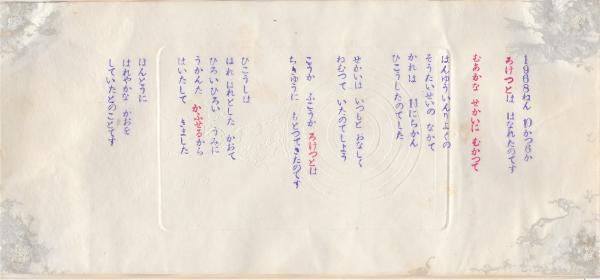 1968ねん 10がつ6か
ろけっとは はなれたのです
むぁかな せかいに むかって
はんゆういんりょくの
そうたいせいの なかで
かれは 11にちかん
ひこうしたのでした
せかいは いつもと おなじく
ねむって いたのでしょう
こうか ふこうか ろけっとは
ちきゅうに もどってきたのです
ひこうしは
はればれとした かおで
ひろいひろい うみに
うかんだ かぷせるから
はいだして きました
ほんとうに
はれやかな かおを
していたとのことです